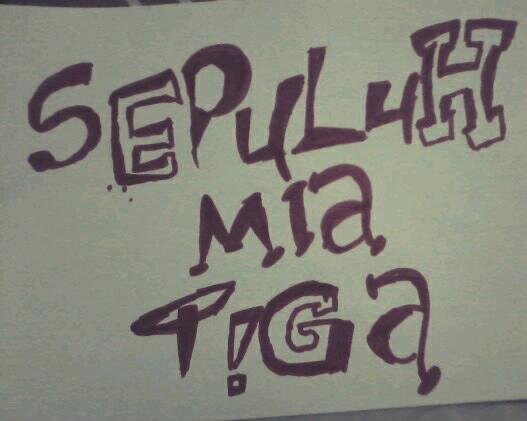 SEPULUH
MIA
T!GA